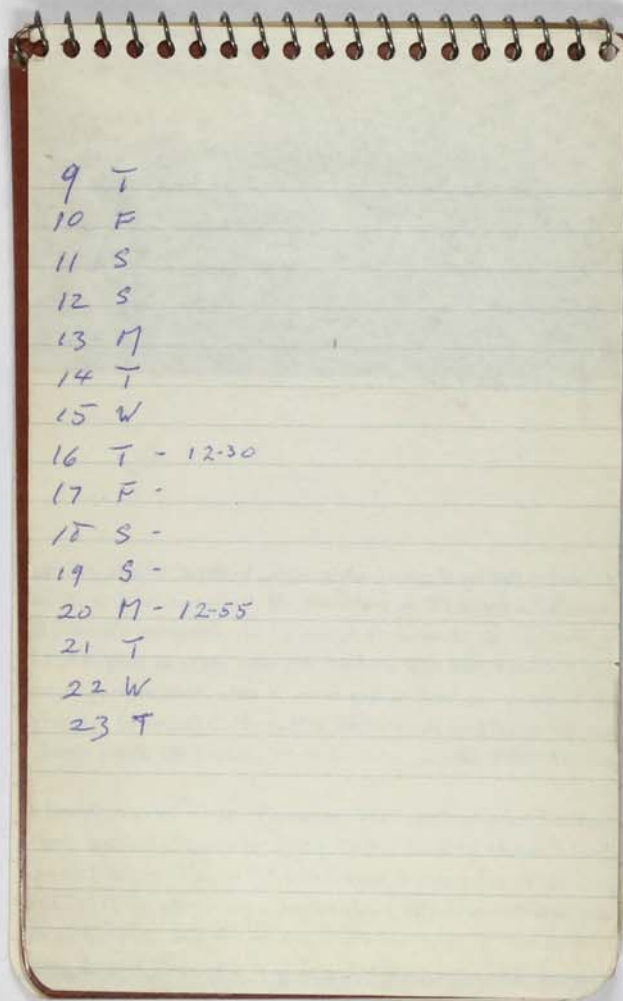 9 T
10 F
11 S
12 S
13 M
14 T
15 W
16 T - 12-30
17 F -
18 S -
19 S -
20 M - 12-55
21 T
22 W
23 T